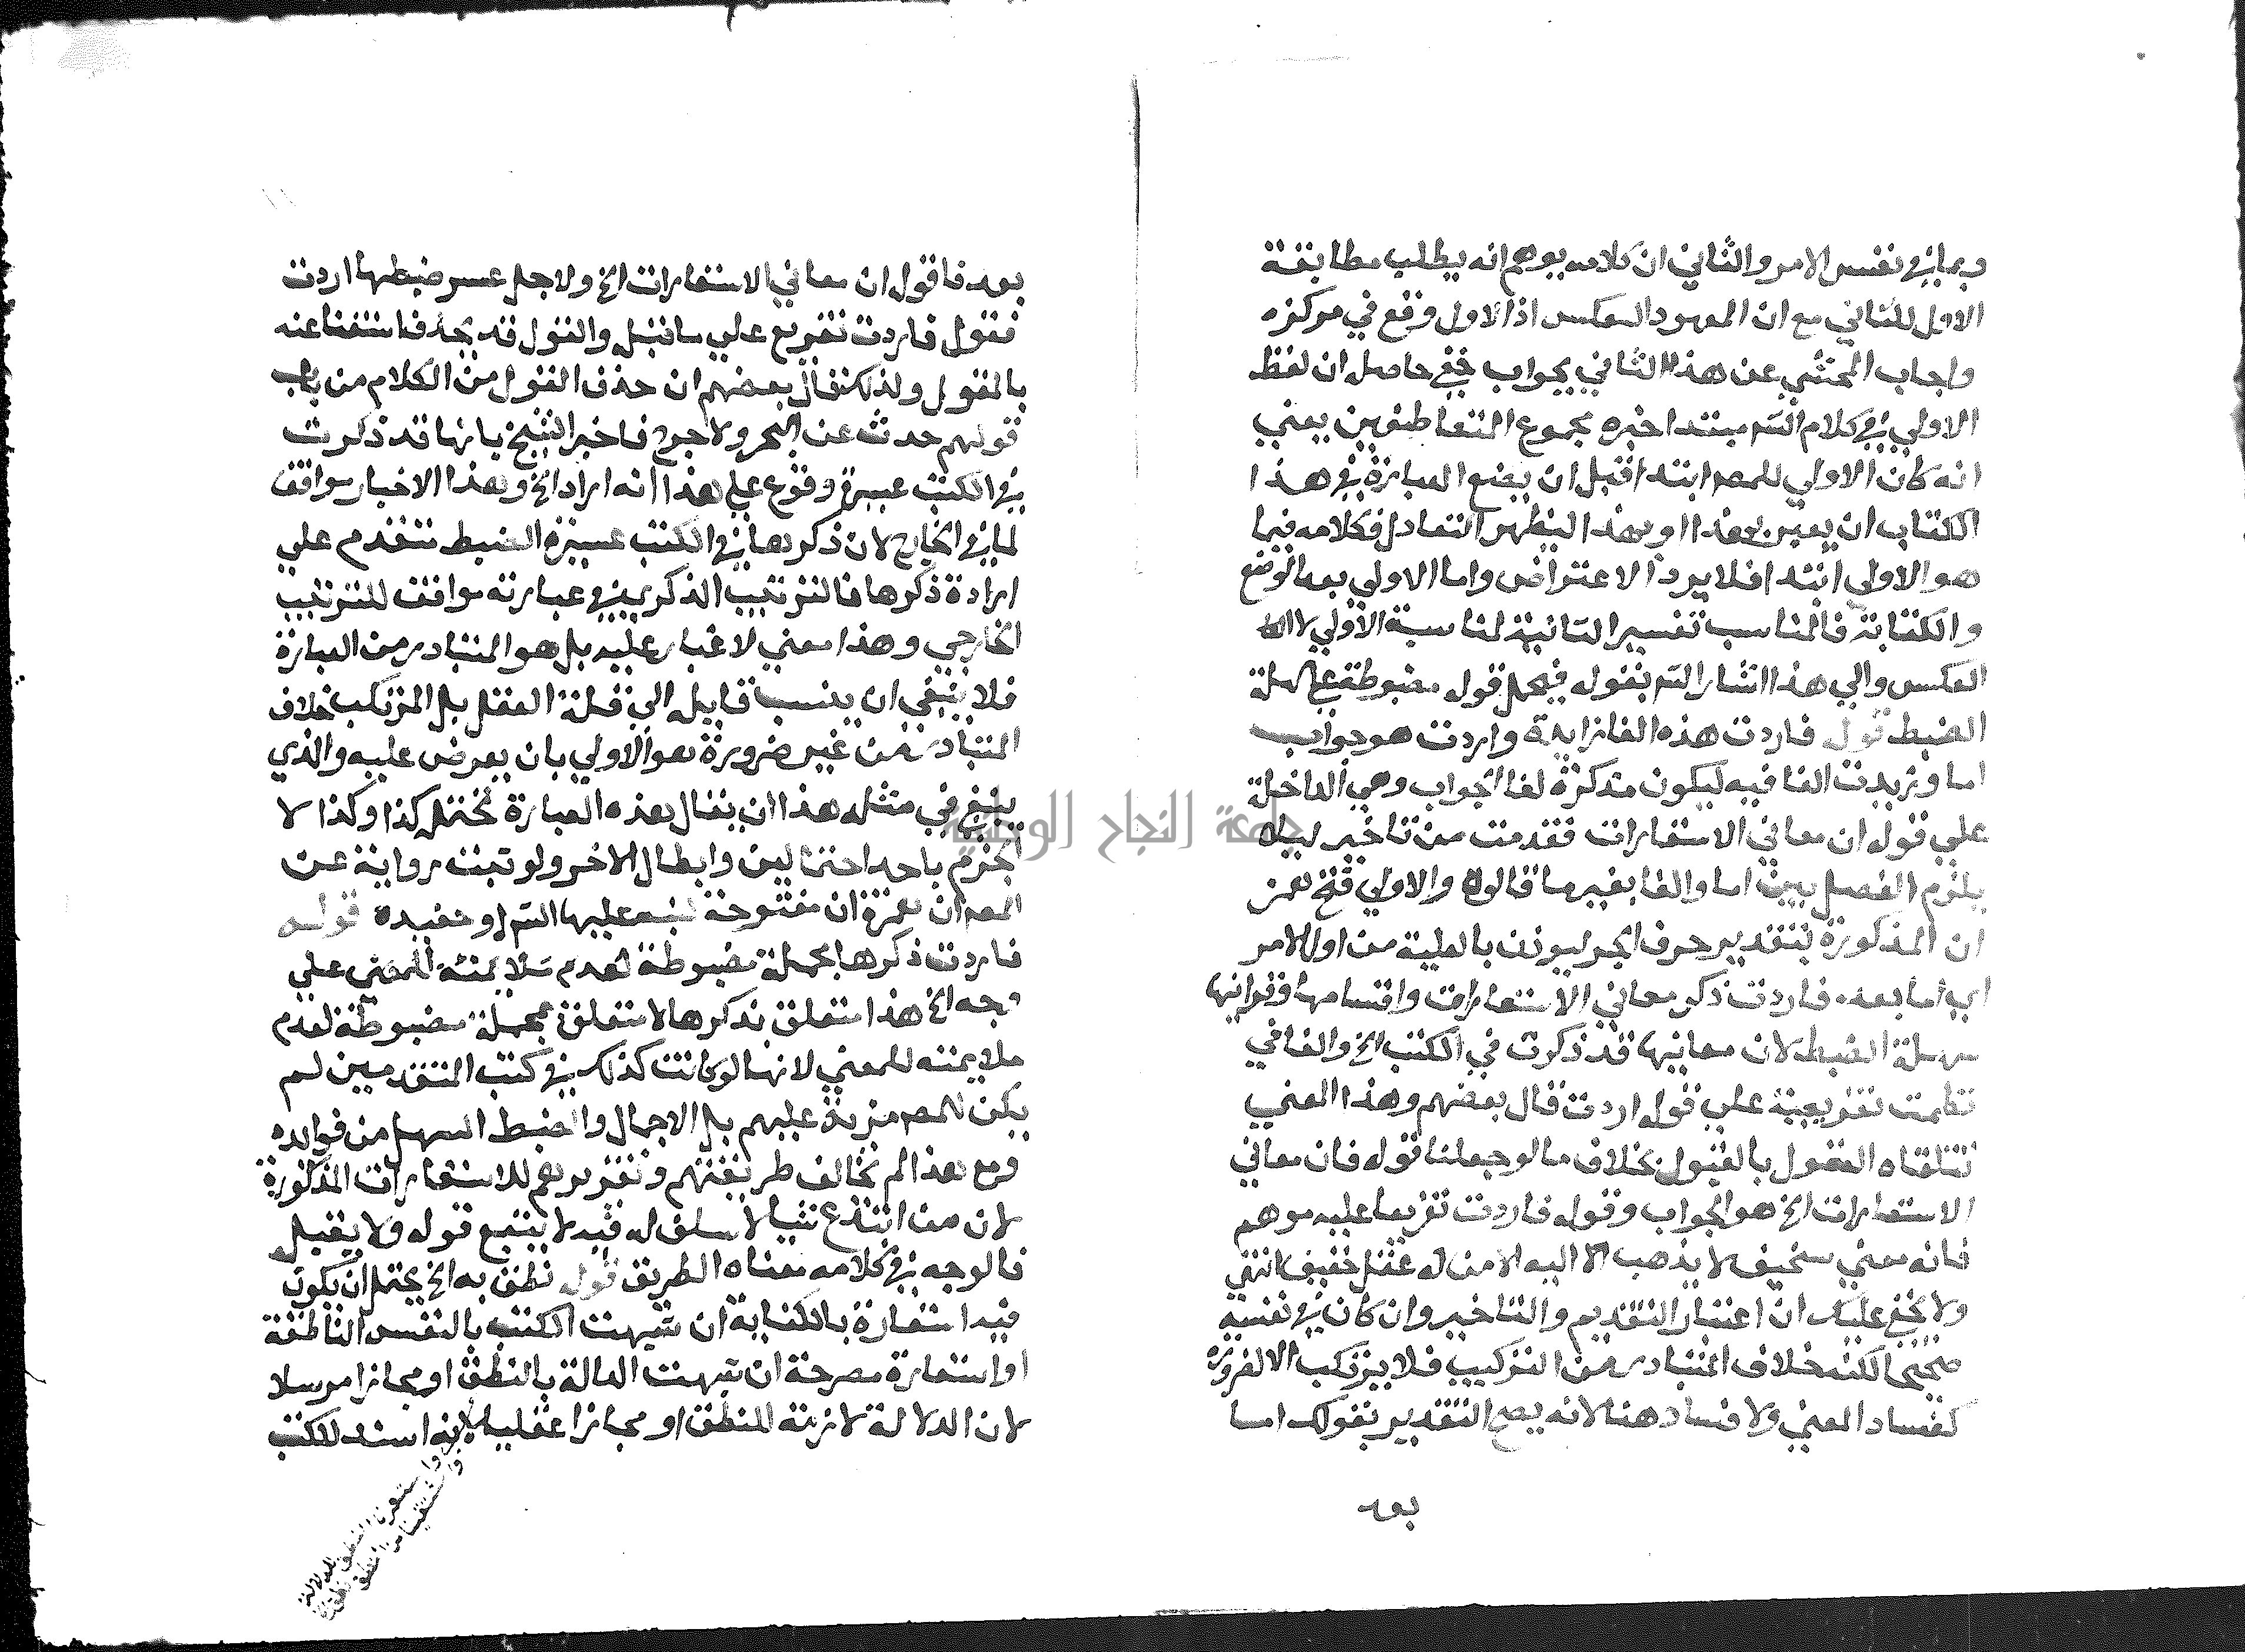 وبما في نفس الامر والثاني ان كلامه يوهم انه يطلب مطابقة
الاول للثاني مع ان المعهود العكس اذ الاول وقع في مركزه
واجاب المحشي عن هذا الثاني بجواب خفي حاصله ان لفظ
الاولي في كلام الشم مبتدا خبره مجموع المتعاطفين يعني
انه كان الاولي للمص ابتدا قبل ان يضع العبارة في هذا
الكتاب ان يعبر بهذا او بهذا ليظهر التعادل فكلامه فيما
هو الاولي ابتدا فلا يرد الاعتراض واما الاولي بعد الوضع
والكتابة فالمناسب تفسير الثانية لمناسبة الاولي لا
العكس والي هذا اشار الشم بقوله فيحمل قوله مضبوطة علي سهلة
الضبط قوله فاردت هذه الفا زايدة واردت هو جواب
اما وزيدت الفا فيه ليكون متذكرة لفا الجواب وهي الداخلة
علي قوله ان معاني الاستعارات فقدمت من تاخير ليلا
يلزم الفصل بين اما والفا بغير ما قالوه والاولي فتح همز
ان المذكورة بتقدير حرف الجر ليوذن بالعلية من اول الامر
اي اما بعد فاردت ذكر معاني الاستعارات واقسامها وقراينها
سهلة الضبط لان معانيها قد ذكرت في الكتب الخ والفا في
نظمت تفريعية علي قوله اردت قال بعضهم وهذا المعني
تتلقاه العقول بالقبول بخلاف ما لو جعلنا قوله فان معاني
الاستعارات الخ هو الجواب وقوله فاردت تفريعا عليه موهم
فانه معني سخيف لا يذهب اليه الا من له عقل خفيف انتهي
ولا يخفي عليك ان اعتبار التقديم والتاخير وان كان في نفسه
صحيحا لكنه خلاف المتبادر من التركيب فلا يرتكب الا لضرورة
كفساد المعني ولا فساد هنا لانه يصح التقدير بقولك اما
بعد
بعد فاقول ان معاني الاستعارات الخ ولاجل عسر ضبطها اردت
فقوله فاردت تفريع علي ما قبله والقول قد يحذف استغنا عنه
بالمقول ولذلك قال بعضهم ان حذف القول من الكلام من باب
قولهم حدث عن البحر ولا حرج فاخبر الشيخ بانها قد ذكرت
في الكتب عسيرة وفرع علي هذا انه اراد الخ وهذا الاخبار موافق
لما في الخارج لان ذكرها في الكتب عسيرة الضبط متقدم علي
ارادة ذكرها فالترتيب الذكري في عبارته موافق للترتيب
الخارجي وهذا معني لا غبار عليه بل هو المتبادر من العبارة
فلا ينبغي ان ينسب قايله الي قلة العقل بل المرتكب خلاف
المتبادر من غير ضرورة هو الاولي بان يعرض عليه والذي
ينبغي في مثله هذا ان يقال هذه العبارة تحتمل كذا وكذا لا
الجزم باحد احتمالين وابطال الاخر ولو ثبت رواية عن
المص ان همزة ان مفتوحة لنبه عليها الشم او حفيده قوله
فاردت ذكرها مجملة مضبوطة لعدم ملايمته للمعني علي
توجه الخ هذا متعلق بذكرها لا متعلق بمجملة مضبوطة لعدم
ملايمته للمعني لانها لو كانت كذلك في كتب المتقدمين لم
يكن للمص مزية عليهم بل الاجمال والضبط السهل من فوايده
ومع هذا لم تخالف طريقتهم وتقريرهم للاستعارات المذكورة
لان من ابتدع شيا لا سلف له فيه لا يتبع قوله ولا يقبل
فالوجه في كلامه معناه الطريق قوله نطق به الخ يحتمل ان يكون
فيه استعارة بالكناية ان شبهت الكتب بالنفس الناطقة
او استعارة مصرحة ان شبهت الدالة بالنطق او مجازا مرسلا
لان الدلالة لازمة للنطق او مجازا عقليا لانه اسند للكتب